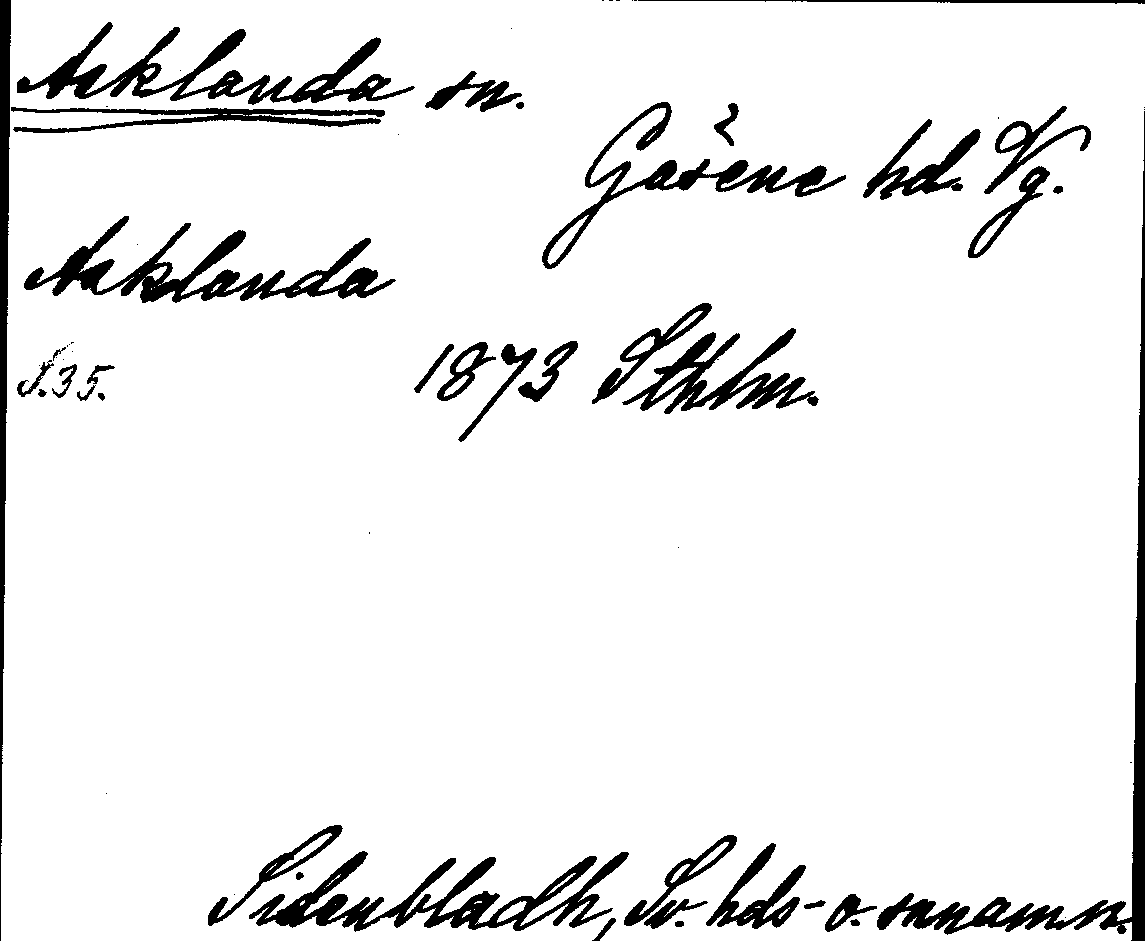 Asklanda sn.
Gäsene hd. Vg.
Asklanda
S. 35. 1873 Sthlm.
Sidenbladh, Sv. hds- o. snnamn.